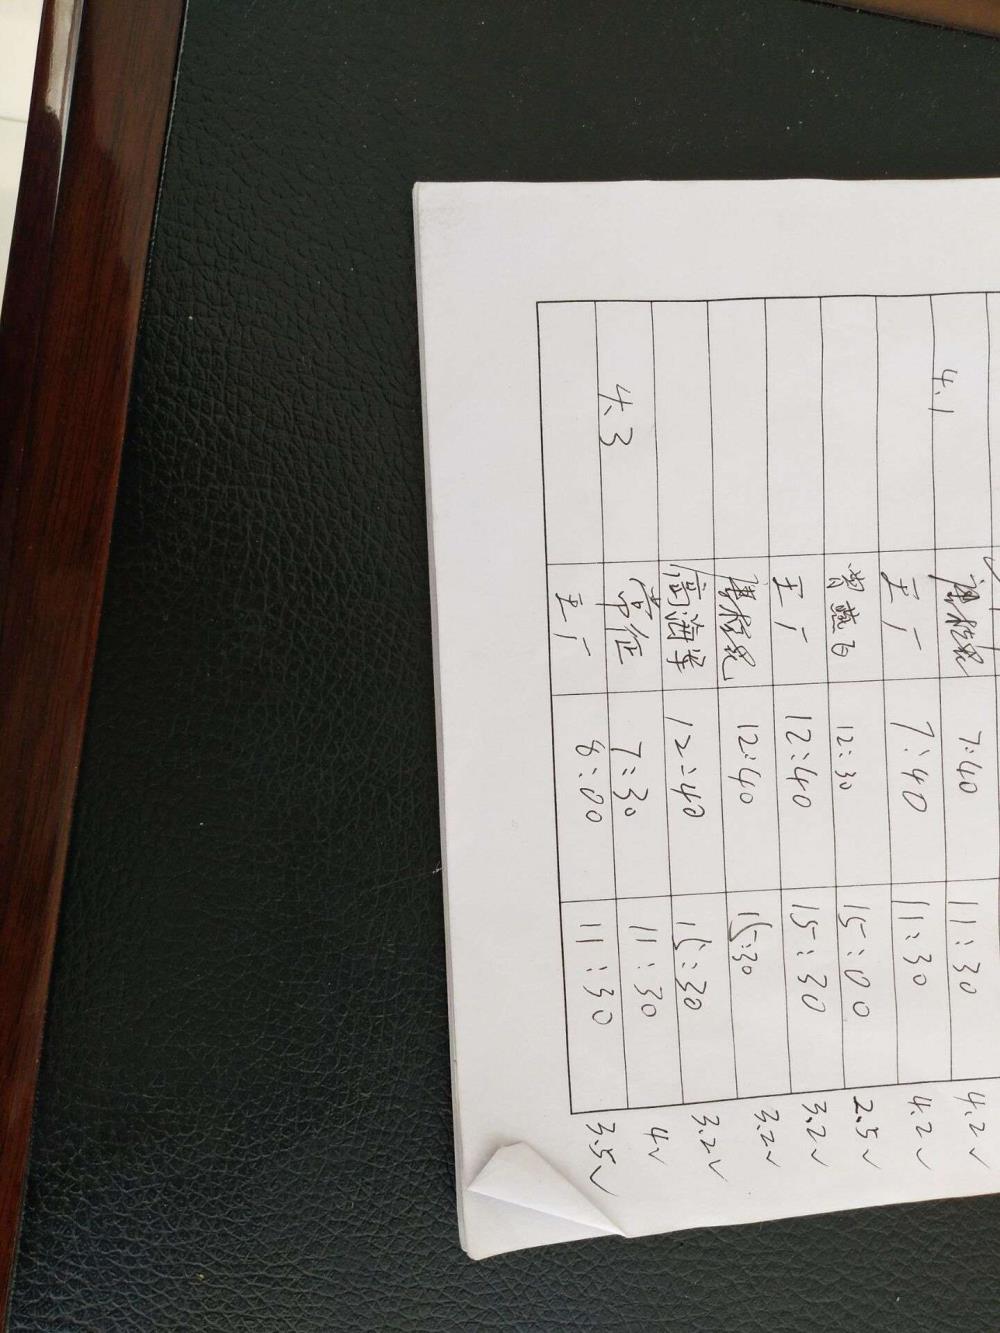 4.1 7:40 11:30 4.2✓
王广 7:40 11:30 4.2✓
12:30 15:00 2.5✓
王广 12:40 15:30 3.2✓
12:40 15:30 3.2✓
12:40 15:30 3.2✓
4.3 常征 7:30 11:30 4✓
王广 8:00 11:30 3.5✓